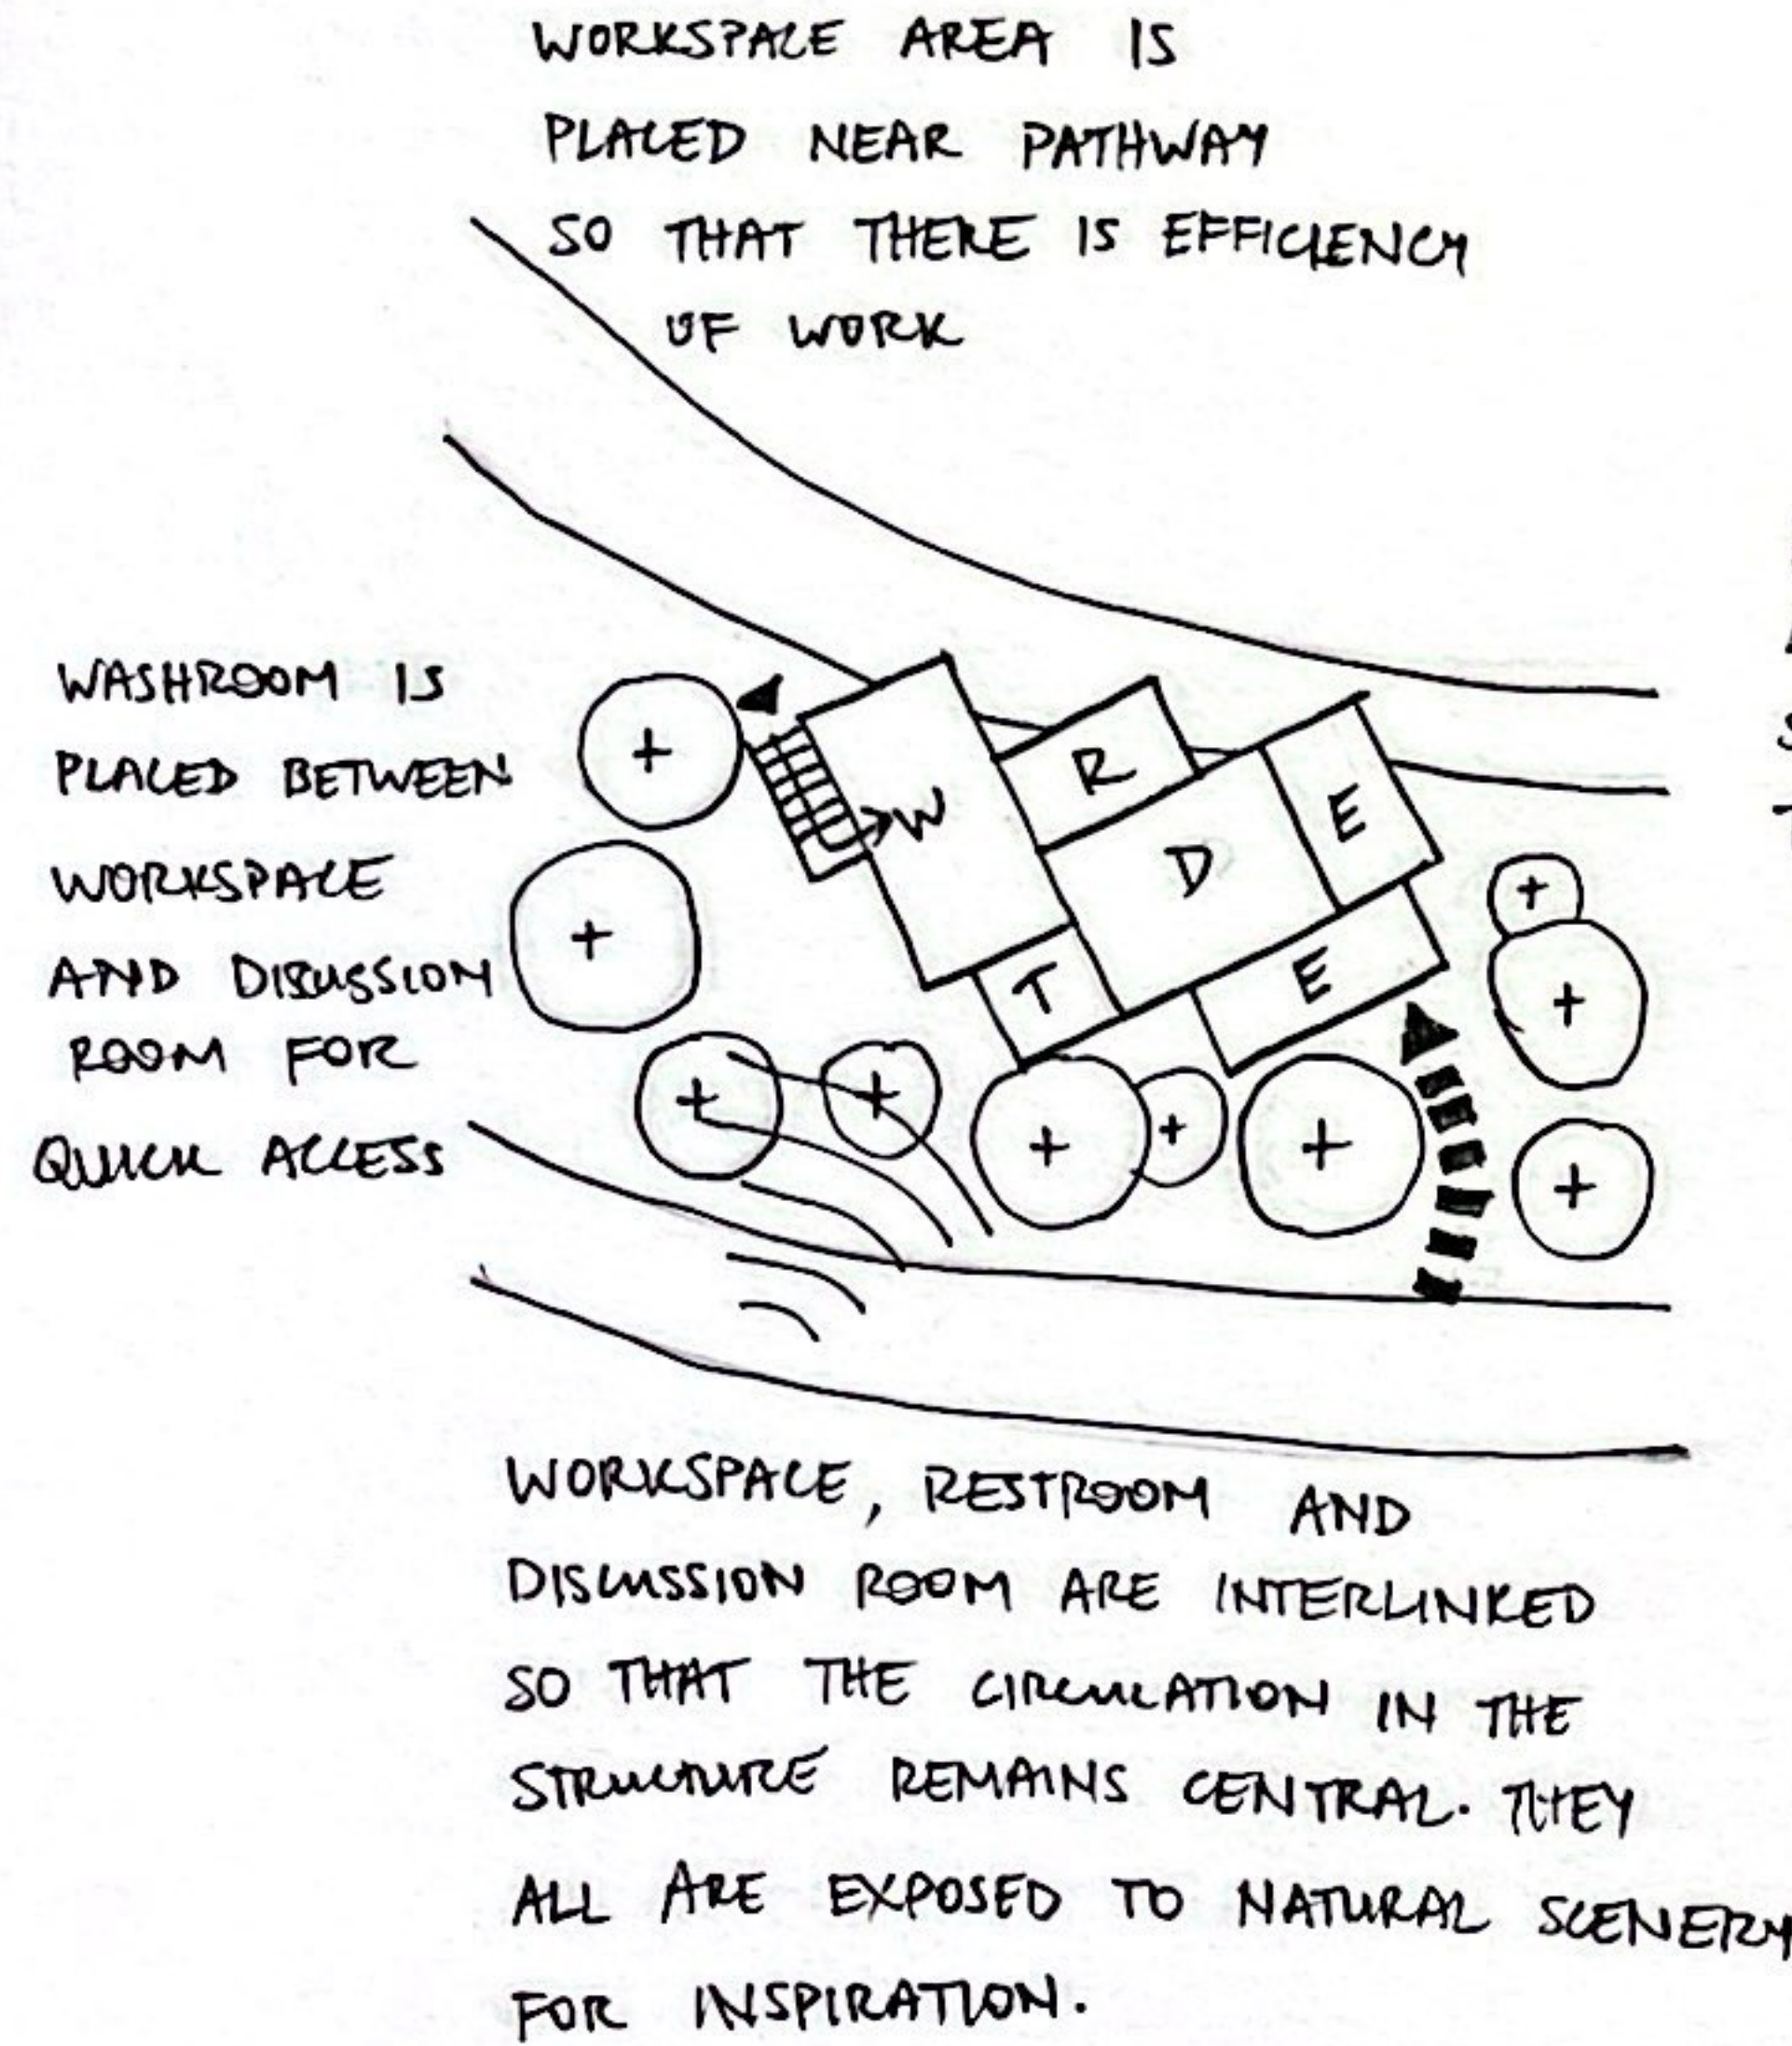 WORKSPACE AREA IS
PLACED NEAR PATHWAY
SO THAT THERE IS EFFICIENCY
OF WORK
WASHROOM IS
PLACED BETWEEN
WORKSPACE
AND DISCUSSION
ROOM FOR
QUICK ACCESS
W
R
D
E
T
E
WORKSPACE, RESTROOM AND
DISCUSSION ROOM ARE INTERLINKED
SO THAT THE CIRCULATION IN THE
STRUCTURE REMAINS CENTRAL. THEY
ALL ARE EXPOSED TO NATURAL SCENERY
FOR INSPIRATION.